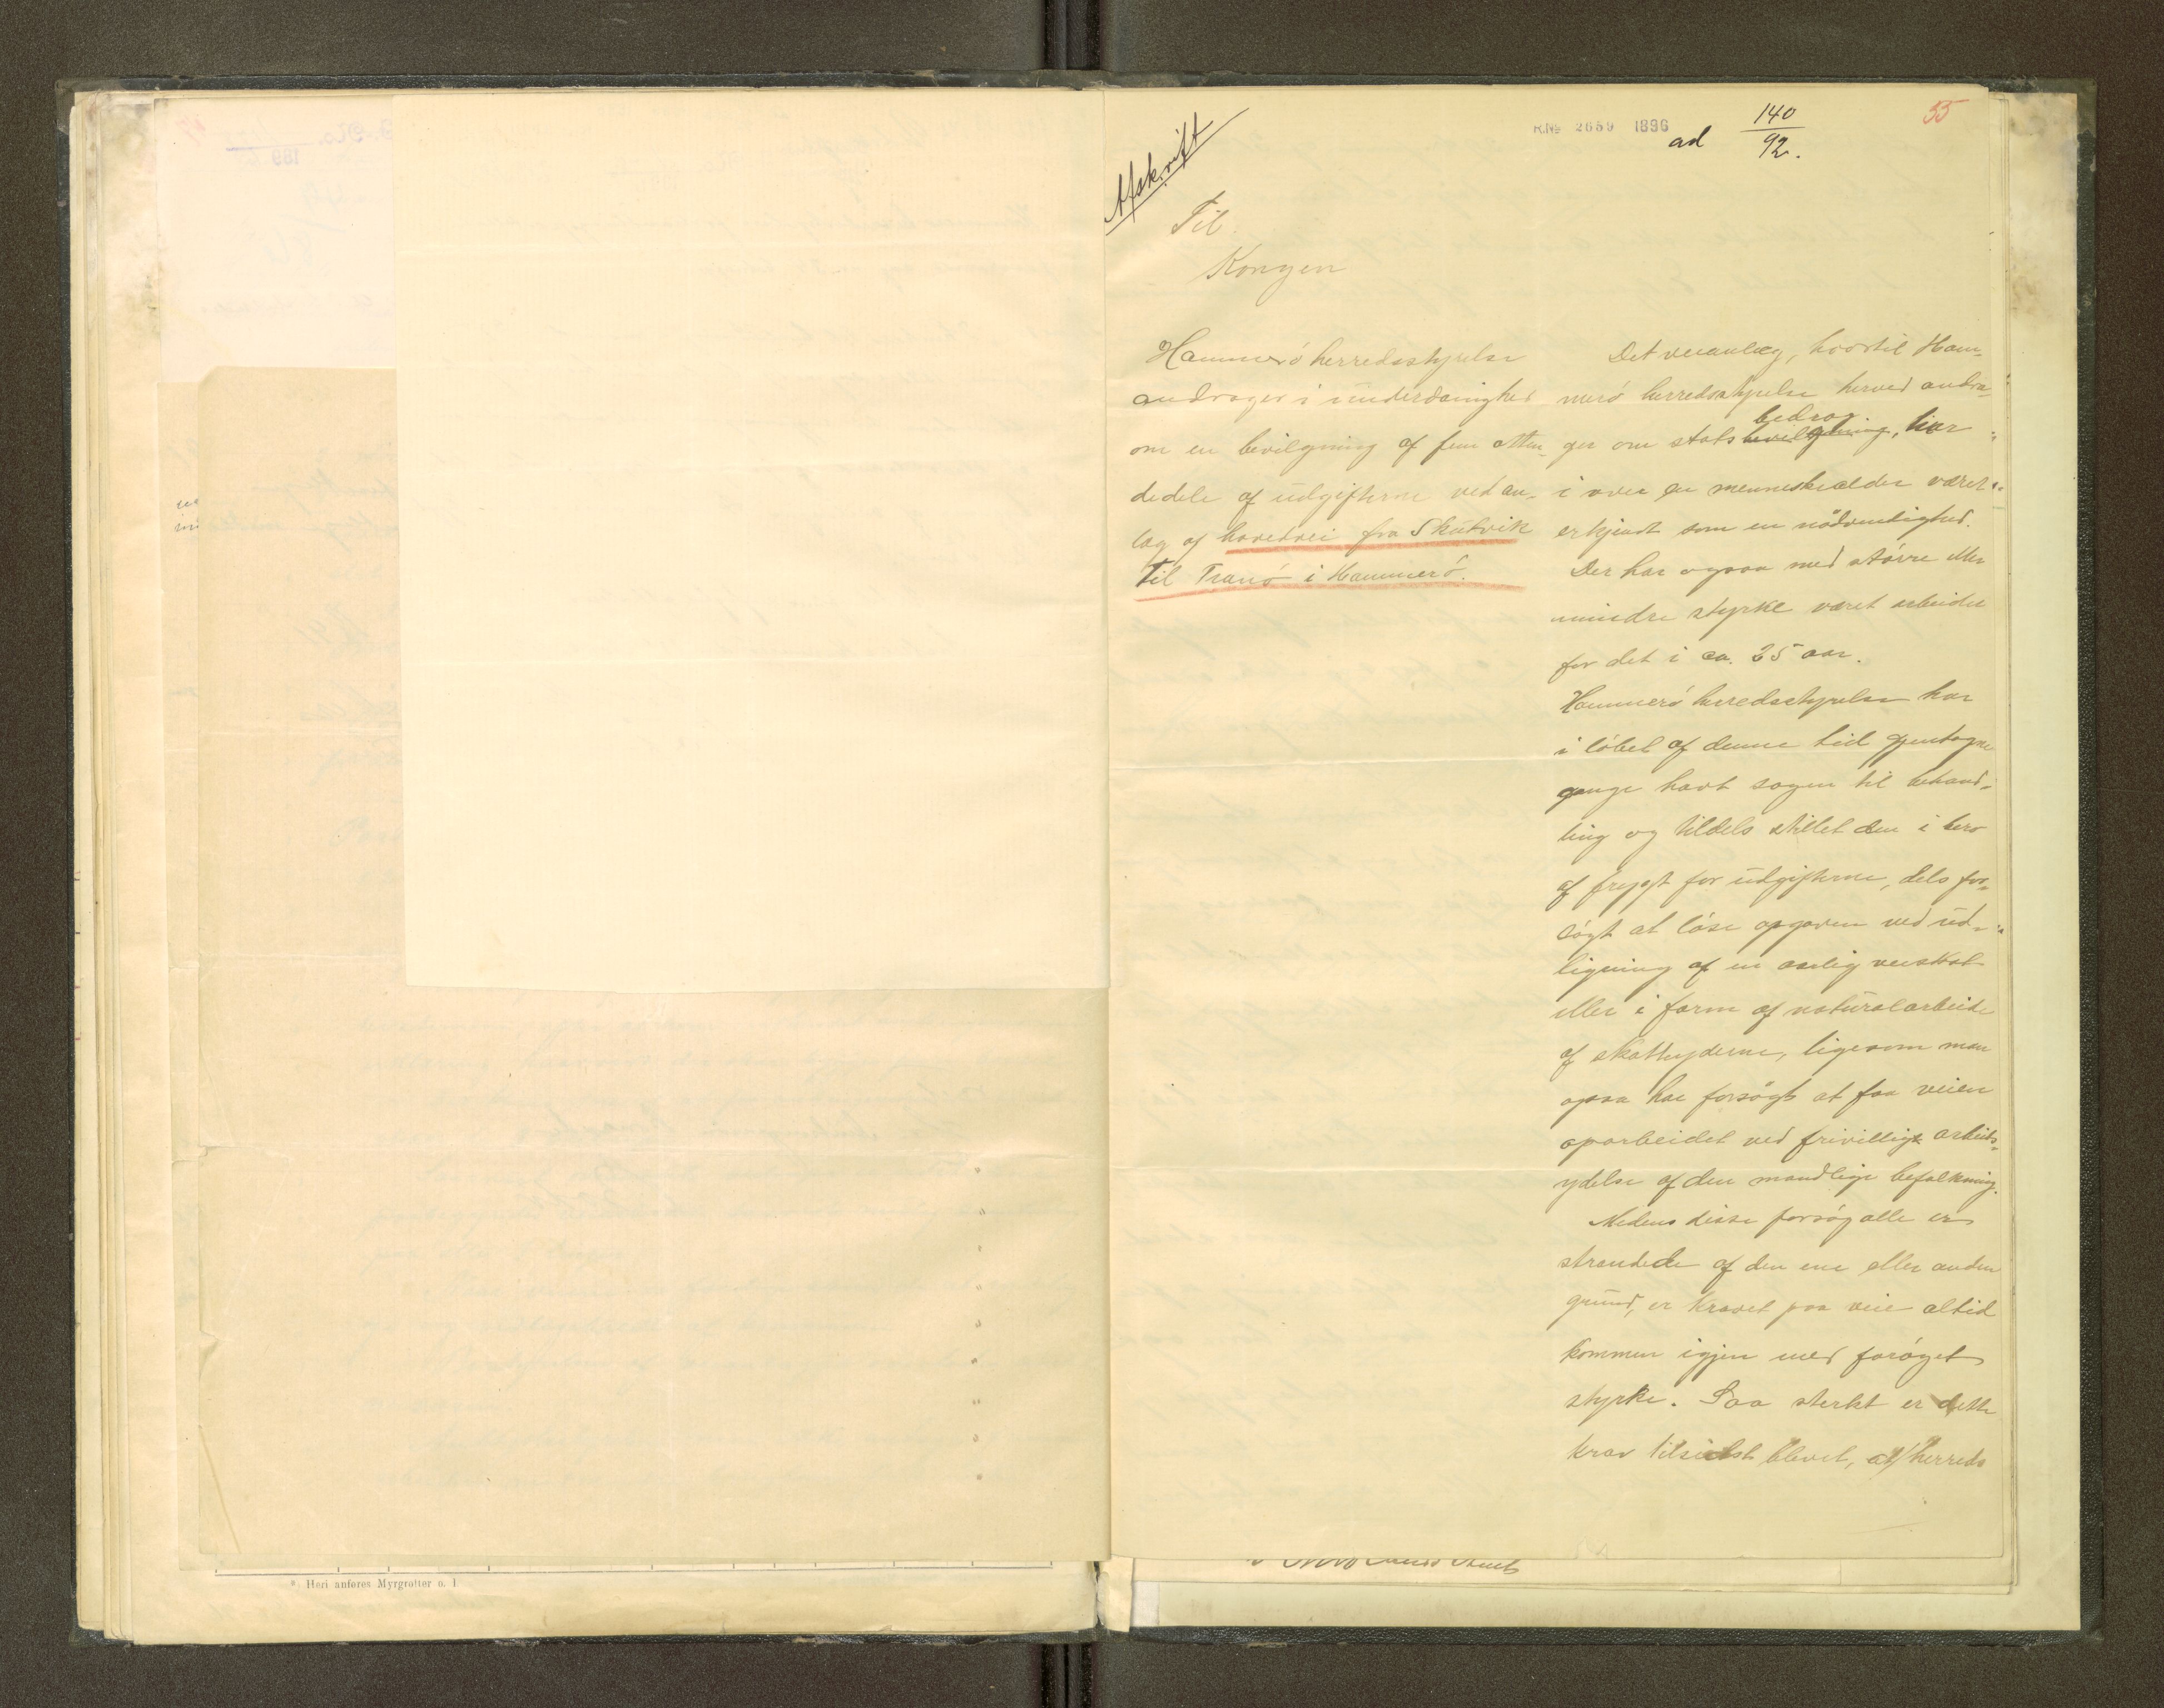 R.No 2659 1896
ad 140/92.
55
Afskrift
Til
Kongen
Hammerö herredsstyrelse
andrager i underdanighed
om en bevilgning af fem otten-
dedele af udgifterne ved an-
læg af hovedvei fra Skutvik
til Tranö i Hammerö.
Det veianlæg, hvortil Ham-
merö herredsstyrelse herved andra-
bidrag
ger om statsbevilgning, har
i over en menneskealder været
erkjendt som en nödvendighed.
Der har ogsaa med större eller
mindre styrke været arbeidet
for det i ca. 25 aar.
Hammerö herredsstyrelse har
i löbet af denne tid gjentagne
gange havt sagen til behand-
ling og tildels stillet den i bero
af frygt for udgifterne, dels for-
sögt at löse opgaven ved ud-
ligning af en aarlig veiskat
eller i form af naturalarbeide
af skatteyderne, ligesom man
ogsaa har forsögt at faa veien
oparbeidet ved frivillige arbeids-
ydelse af den mandlige befolkning.
Medens disse forsög alle er
strandede af den ene eller anden
grund, er kravet paa veie altid
kommen igjen med foröget
styrke. Saa sterkt er dette
krav tilsidst blevet, at herreds
*) Heri anføres Myrgrøfter o. l.